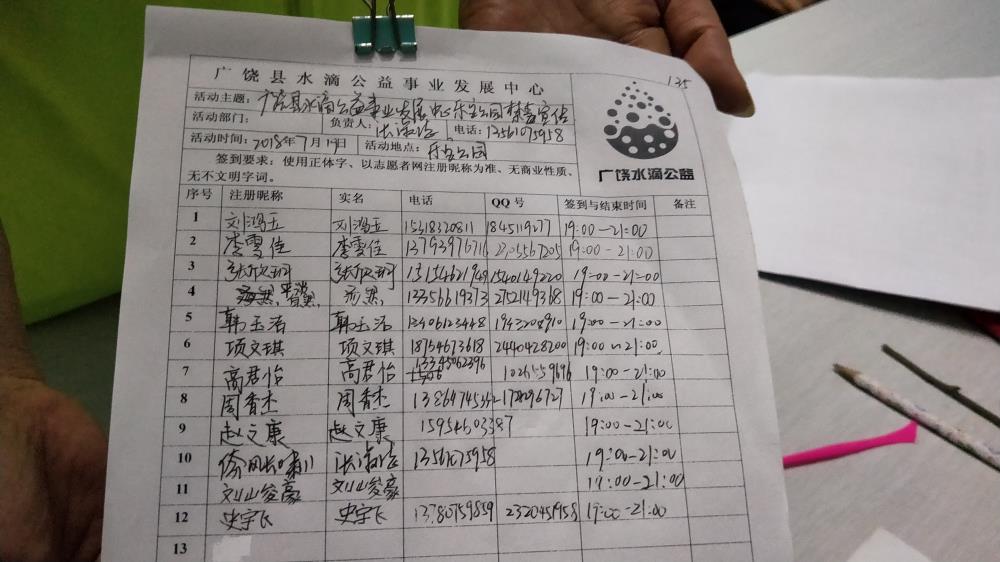 135
广饶县水滴公益事业发展中心
活动主题:广饶县水滴公益事业发展中心乐安公园禁毒宣传
活动部门: 负责人: 电话:13561075958
活动时间:2018年7月19日 活动地点:乐安公园
签到要求:使用正体字、以志愿者网注册昵称为准、无商业性质、
无不文明字词。
广饶水滴公益
序号 注册昵称 实名 电话 QQ号 签到与结束时间 备注
1 刘鸿玉 刘鸿玉 15318320811 1845119277 19:00-21:00
2 李雪佳 李雪佳 13793976716 19:00-21:00
3 张欣珂 张欣珂 13154621949 1540149220 19:00-21:00
4 13356619373 2752149368 19:00-21:00
5 韩玉洁 韩玉洁 13406123448 1943204910 19:00-21:00
6 项文琪 项文琪 18754673618 2440428200 19:00-21:00
7 高君怡 高君怡 19:00-21:00
8 周香杰 周香杰 19:00-21:00
9 赵文康 赵文康 15954603387 19:00-21:00
10 13561075958 19:00-21:00
11 刘山俊豪 刘山俊豪 19:00-21:00
12 史宇飞 史宇飞 13780759859 2320451958 19:00-21:00
13